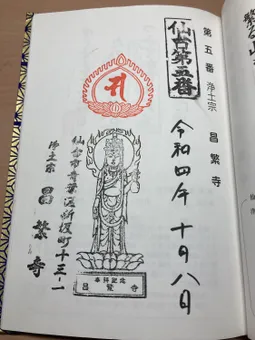 第五番 浄土宗 昌繁寺
仙台第五番
令和四年 十月八日
仙台市青葉区新坂町十三-一
浄土宗 昌繁寺
参拝記念
昌繁寺